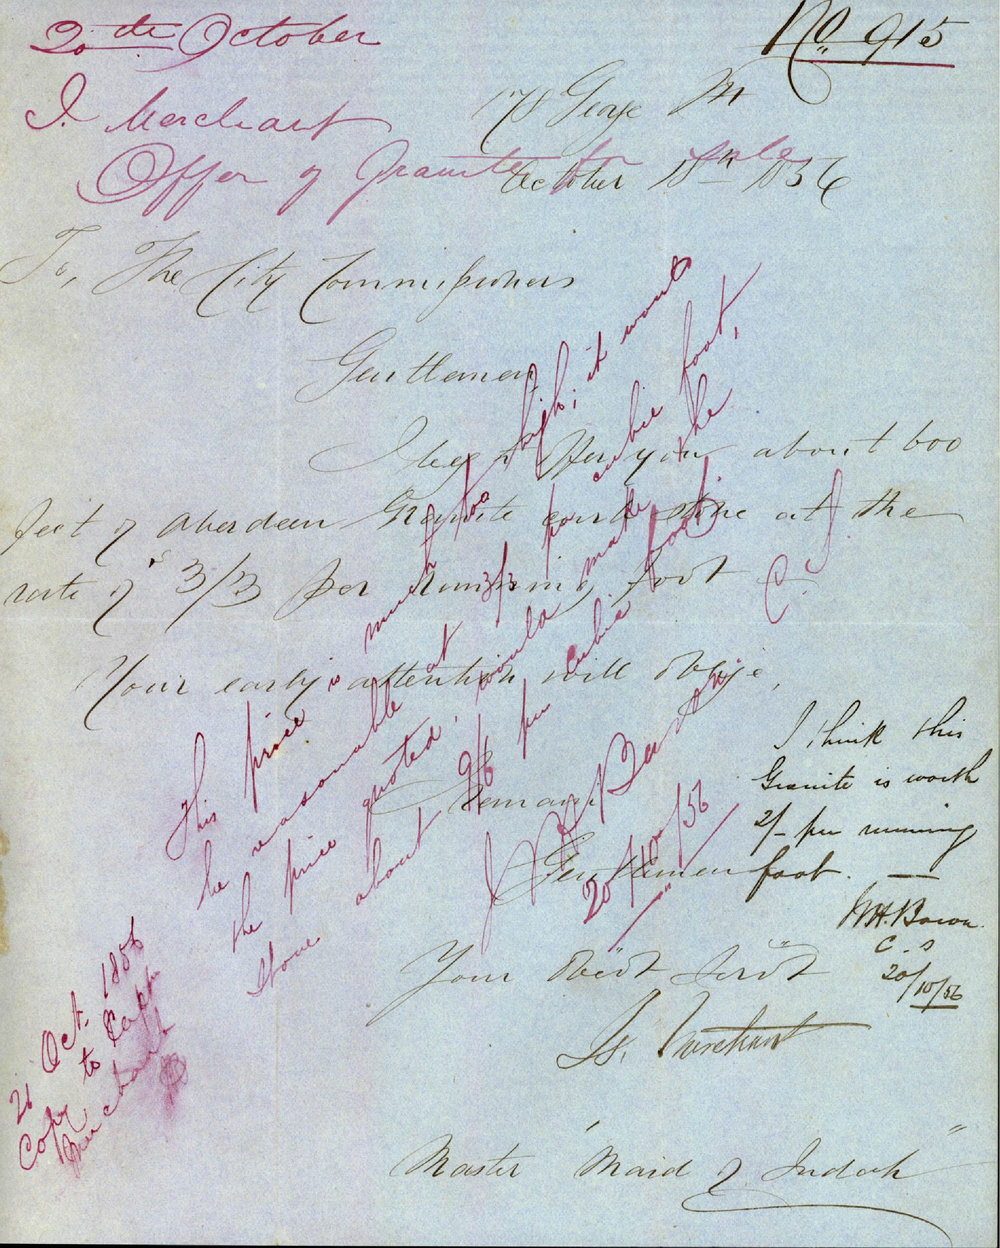 20th October
No. 915
I. Merchant
Offer of Granite for Sale
178 George St
October 18th 1856
To, The City Commissioners
Gentlemen
I beg to offer you about 600
feet of Aberdeen Granite curb stone at the
rate of 3/3 per running foot
Your early attention will oblige,
I remain
Gentlemen
Your Obedt Servt
Is. Merchant
Master "Maid of Judah"
This price is much too high; it would
be reasonable at 3/3 per cubic foot,
the price quoted, would make the
stone about 9/6 per cubic foot.
C. S.
20/10/56
I think this
Granite is worth
2/- per running
foot. —
C. S
20/10/56
21 Oct. 1856
Copy to Capn
Merchant